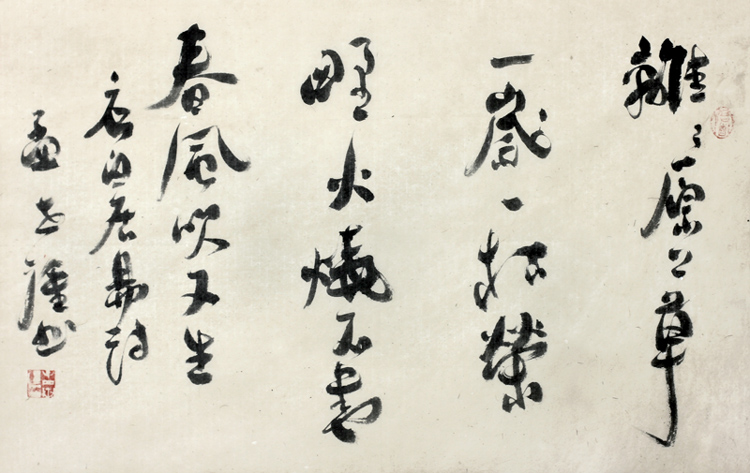 離〻原上草
一歲一枯榮
野火燒不盡
春風吹又生
唐白居易詩
孟世書